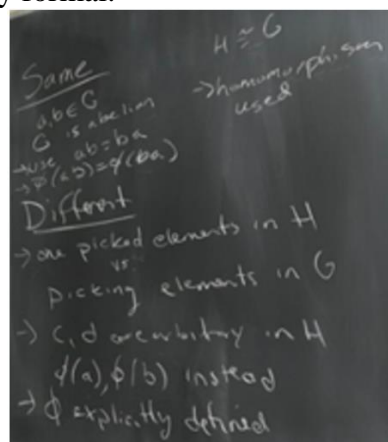 y formal.
Same
a,b ∈ G
G is abelian
→ use ab=ba
→ φ(ab)=φ(ba)
H ≅ G
→ homomorphism
used
Different
→ one picked elements in H
vs
picking elements in G
→ c,d are arbitrary in H
φ(a),φ(b) instead
→ φ explicitly defined